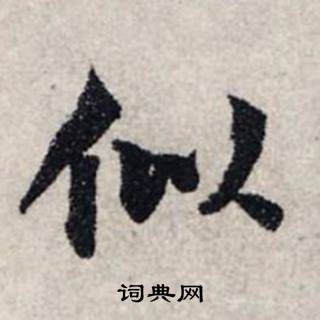 似
词典网